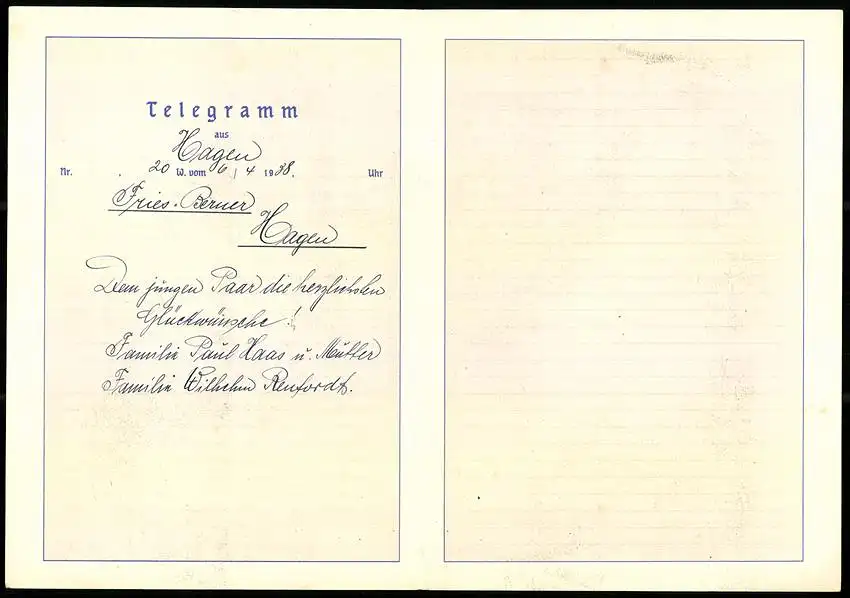 Telegramm
aus
Hagen
Nr. 20 W. vom 6/4 1938. Uhr
Fries-Berner
Hagen
Dem jungen Paar die herzlichsten
Glückwünsche!
Familie Paul Haas u. Mutter
Familie Wilhelm Renfordt.